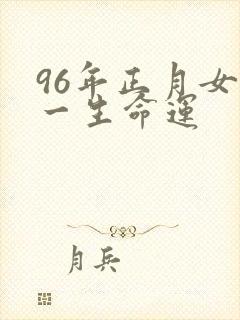 96年正月女
一生命运
月兵